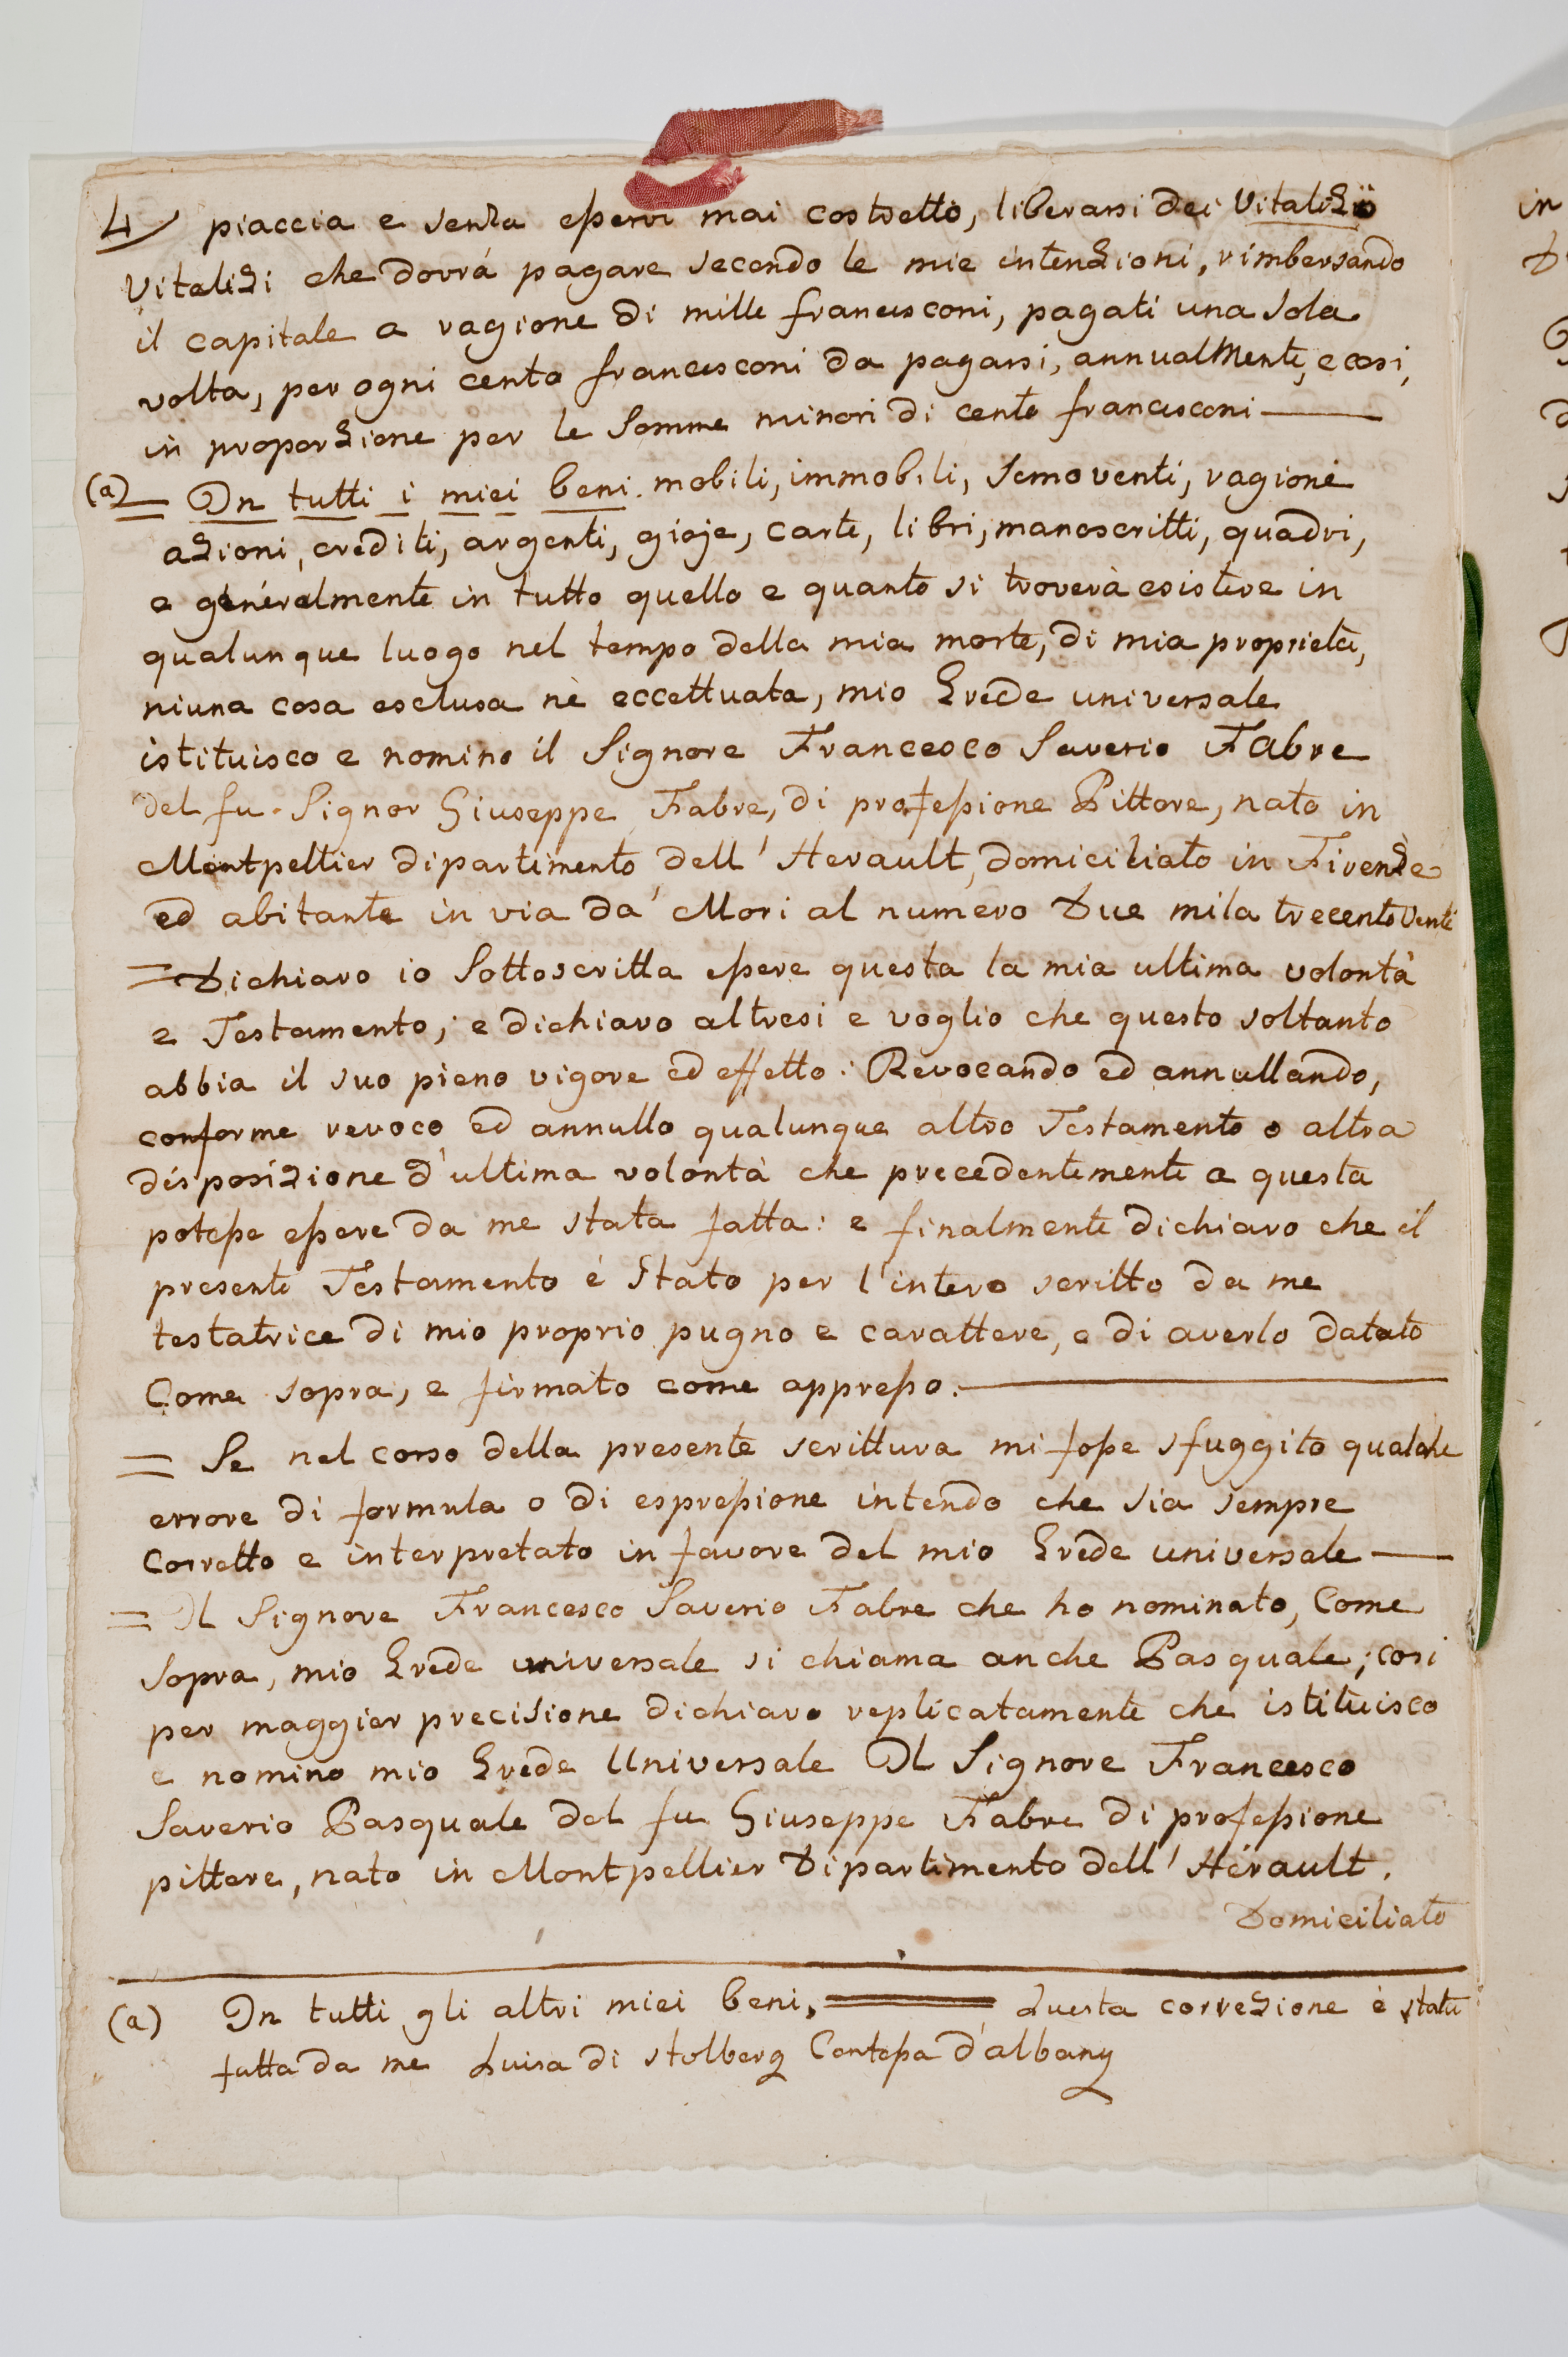 4/ piaccia e senza esservi mai costretto, liberarsi dei Vitalizii
Vitalizi che dovrá pagare secondo le mie intenzioni, rimborsando
il capitale a ragione di mille francesconi, pagati una sola
volta, per ogni cento francesconi da pagarsi, annualMente, e cosi,
in proporzione per le Somme minori di cento francesconi —
(a) = In tutti i miei beni. mobili, immobili, semoventi, ragioni
azioni, crediti, argenti, gioje, carte, libri, manoscritti, quadri,
e generalmente in tutto quello e quanto si troverà esistere in
qualunque luogo nel tempo della mia morte, di mia proprietà,
niuna cosa esclusa nè eccettuata, mio Erede universale
istituisco e nomino il Signore Francesco Saverio Fabre
del fu Signor Giuseppe Fabre, di professione Pittore, nato in
Montpellier dipartimento dell' Herault, domiciliato in Firenze
ed abitante in via da' Mori al numero Due mila trecento Venti
= Dichiaro io Sottoscritta essere questa la mia ultima volontà
e Testamento; e dichiaro altresi e voglio che questo soltanto
abbia il suo pieno vigore ed effetto: Revocando ed annullando,
conforme revoco ed annullo qualunque altro Testamento o altra
disposizione d'ultima volontà che precedentemente a questa
potesse essere da me stata fatta: e finalmente dichiaro che il
presente Testamento é Stato per l'intero scritto da me
testatrice di mio proprio pugno e carattere, e di averlo datato
Come sopra, e firmato come appresso. —
= Se nel corso della presente scrittura mi fosse sfuggito qualche
errore di formula o di espressione intendo che sia sempre
Corretto e interpretato in favore del mio Erede universale —
= Il Signore Francesco Saverio Fabre che ho nominato, Come
Sopra, mio Erede universale si chiama anche Pasquale; cosi
per maggior precisione dichiaro replicatamente che istituisco
e nomino mio Erede Universale Il Signore Francesco
Saverio Pasquale del fu Giuseppe Fabre di professione
pittore, nato in Montpellier Dipartimento dell' Hérault.
Domiciliato
(a) In tutti gli altri miei beni, = Questa correzione è stata
fatta da me Luisa di Stolberg Contessa d'albany